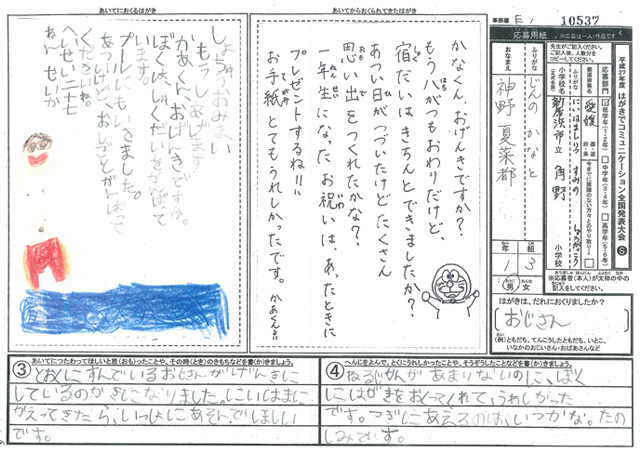 あいてにおくるはがき
しょちゅうおみまい
もうしあげます
かあくんおげんきですか。
ぼくは、しゅくだいをがんばって
います。
プールにもいきました。
あついけど、おしごとがんばって
くださいね。
へいせい二十七
ねん
あいてからおくられてきたはがき
かなくん おげんきですか?
もう八がつもおわりだけど、
宿だいはきちんとできましたか?
あつい日がつづいたけどたくさん
思い出をつくれたかな?
一年生になったお祝いは、あったときに
プレゼントするね!!
お手紙とてもうれしかったです。
かあくん
事務局
10537
応募用紙
※応募は1人1作品です
平成27年度 はがきでコミュニケーション全国発表大会
応募部門
低学年(1・2年)
中学年(3・4年)
高学年(5・6年)
愛媛
新居浜市立 角野
小学校
ふりがな
じんの かなと
おなまえ
神野 夏菜都
1年
3組
男
女
はがきは、だれにおくりましたか?
おじさん
(例)ともだち、てんこうしたともだち、いとこ、
いなかのおじいさん・おばあさんなど
③
あいてにつたわってほしいと思(おも)ったことや、その時(とき)のきもちなどを書(か)きましょう。
とおくにすんでいるおじさんがげんきに
しているのかきになりました。にいはまに
かえってきたら、いっしょにあそんでほしい
です。
④
へんじをよんで、とくにうれしかったことや、そうぞうしたことなどを書(か)きましょう。
ねるじかんがあまりないのに、ぼく
にはがきをおくってくれて、うれしかった
です。つぎにあえるのは、いつかな。たの
しみです。